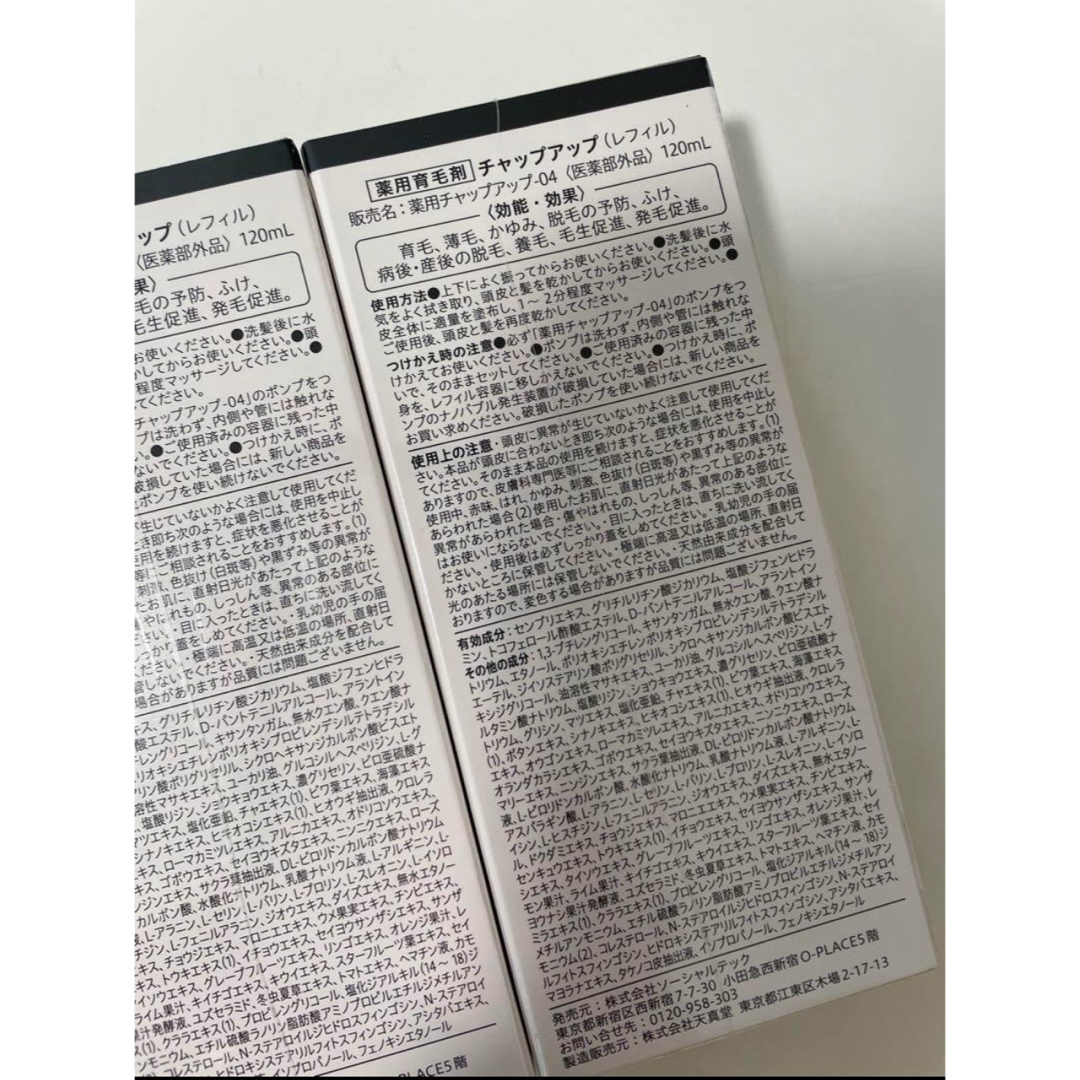 薬用育毛剤 チャップアップ（レフィル）
販売名：薬用チャップアップ-04〈医薬部外品〉120mL
〈効能・効果〉
育毛、薄毛、かゆみ、脱毛の予防、ふけ、
病後・産後の脱毛、養毛、毛生促進、発毛促進。
使用方法●上下によく振ってからお使いください。●洗髪後に水
気をよく拭き取り、頭皮と髪を乾かしてからお使いください。●頭
皮全体に適量を塗布し、1～2分程度マッサージしてください。●
ご使用後、頭皮と髪を再度乾かしてください。
つけかえ時の注意●必ず「薬用チャップアップ-04」のポンプをつ
けかえてお使いください。●ポンプは洗わず、内側や管には触れな
いで、そのままセットしてください。●ご使用済みの容器に残った中
身を、レフィル容器に移しかえないでください。●つけかえ時に、ポ
ンプのナノバブル発生装置が破損していた場合には、新しい商品を
お買い求めください。破損したポンプを使い続けないでください。
使用上の注意・頭皮に異常が生じていないかよく注意して使用してくだ
さい。本品が頭皮に合わないとき即ち次のような場合には、使用を中止し
てください。そのまま本品の使用を続けますと、症状を悪化させることが
ありますので、皮膚科専門医等にご相談されることをおすすめします。(1)
使用中、赤味、はれ、かゆみ、刺激、色抜け(白斑等)や黒ずみ等の異常が
あらわれた場合(2)使用したお肌に、直射日光があたって上記のような
異常があらわれた場合・傷やはれもの、しっしん等、異常のある部位に
はお使いにならないでください。・目に入ったときは、直ちに洗い流してく
ださい。・使用後は必ずしっかり蓋をしめてください。・乳幼児の手の届
かないところに保管してください。・極端に高温又は低温の場所、直射日
光のあたる場所には保管しないでください。・天然由来成分を配合して
おりますので、変色する場合がありますが品質には問題ございません。
有効成分：センブリエキス、グリチルリチン酸ジカリウム、塩酸ジフェンヒドラ
ミン、トコフェロール酢酸エステル、D-パントテニルアルコール、アラントイン
その他の成分：1,3-ブチレングリコール、キサンタンガム、無水クエン酸、クエン酸ナ
トリウム、エタノール、ポリオキシエチレンポリオキシプロピレンデシルテトラデシル
エーテル、ジイソステアリン酸ポリグリセリル、シクロヘキサンジカルボン酸ビスエト
キシジグリコール、油溶性マサキエキス、ユーカリ油、グルコシルヘスペリジン、L-グ
ルタミン酸ナトリウム、塩酸リジン、ショウキョウエキス、濃グリセリン、ピロ亜硫酸ナ
トリウム、グリシン、マツエキス、塩化亜鉛、チャエキス(1)、ビワ葉エキス、海藻エキス
(1)、ボタンエキス、シナノキエキス、ヒキオコシエキス(1)、ヒオウギ抽出液、クロレラ
エキス、オウゴンエキス、ローマカミツレエキス、アルニカエキス、オドリコソウエキス、
オランダカラシエキス、ゴボウエキス、セイヨウキズタエキス、ニンニクエキス、ローズ
マリーエキス、ニンジンエキス、サクラ葉抽出液、DL-ピロリドンカルボン酸ナトリウム
液、L-ピロリドンカルボン酸、水酸化ナトリウム、乳酸ナトリウム液、L-アルギニン、L-
アスパラギン酸、L-アラニン、L-セリン、L-バリン、L-プロリン、L-スレオニン、L-イソロ
イシン、L-ヒスチジン、L-フェニルアラニン、ジオウエキス、ダイズエキス、無水エタノー
ル、ドクダミエキス、チョウジエキス、マロニエエキス、ウメ果実エキス、チンピエキス、
センキュウエキス、トウキエキス(1)、イチョウエキス、セイヨウサンザシエキス、サンザ
シエキス、タイソウエキス、グレープフルーツエキス、リンゴエキス、オレンジ果汁、レ
モン果汁、ライム果汁、キイチゴエキス、キウイエキス、スターフルーツ葉エキス、セイ
ヨウナシ果汁発酵液、ユズセラミド、冬虫夏草エキス、トマトエキス、ヘマチン液、カモ
ミラエキス(1)、クララエキス(1)、プロピレングリコール、塩化ジアルキル(14～18)ジ
メチルアンモニウム、エチル硫酸ラノリン脂肪酸アミノプロピルエチルジメチルアン
モニウム(2)、コレステロール、N-ステアロイルジヒドロスフィンゴシン、N-ステアロイ
ルフィトスフィンゴシン、ヒドロキシステアリルフィトスフィンゴシン、アシタバエキス、
マヨラナエキス、タケノコ皮抽出液、イソプロパノール、フェノキシエタノール
発売元：株式会社ソーシャルテック
東京都新宿区西新宿7-7-30 小田急西新宿O-PLACE5階
お問い合せ先：0120-958-303
製造販売元：株式会社天真堂 東京都江東区木場2-17-13